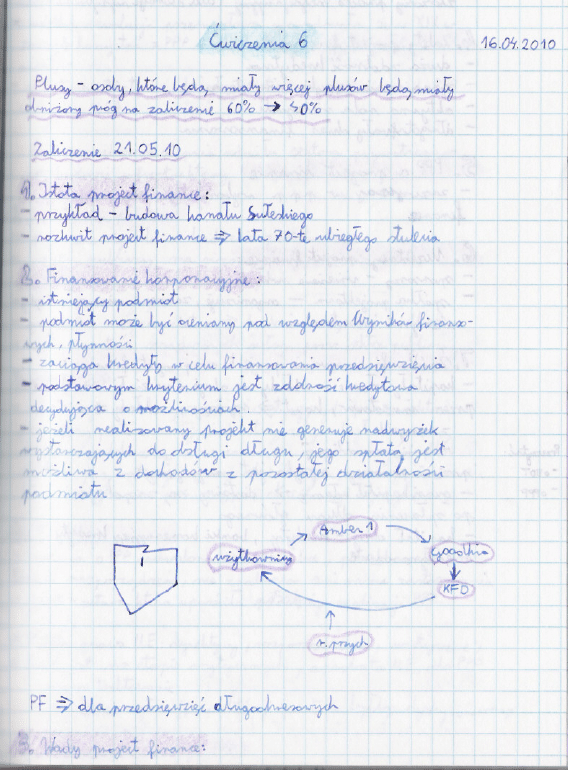 Ćwiczenia 6
16.04.2010
Plusy - osoby, które będą miały więcej plusów będą miały
obniżony próg na zaliczenie 60% → 50%
Zaliczenie 21.05.10
1. Istota project finance:
- przykład - budowa kanału Sueskiego
- rozkwit project finance ⇒ lata 70-te ubiegłego stulecia
2. Finansowanie korporacyjne:
- istniejący podmiot
- podmiot może być oceniany pod względem wyników finanso-
wych, płynności
- zaciąga kredyty w celu finansowania przedsięwzięcia
- podstawowym kryterium jest zdolność kredytowa
decydująca o możliwościach.
- jeżeli realizowany projekt nie generuje nadwyżek
wystarczających do obsługi długu, jego spłata jest
możliwa z dochodów z pozostałej działalności
podmiotu
Amber 1
użytkownicy
KFD
r. przych
PF ⇒ dla przedsięwzięć długookresowych
3. Wady project finance: